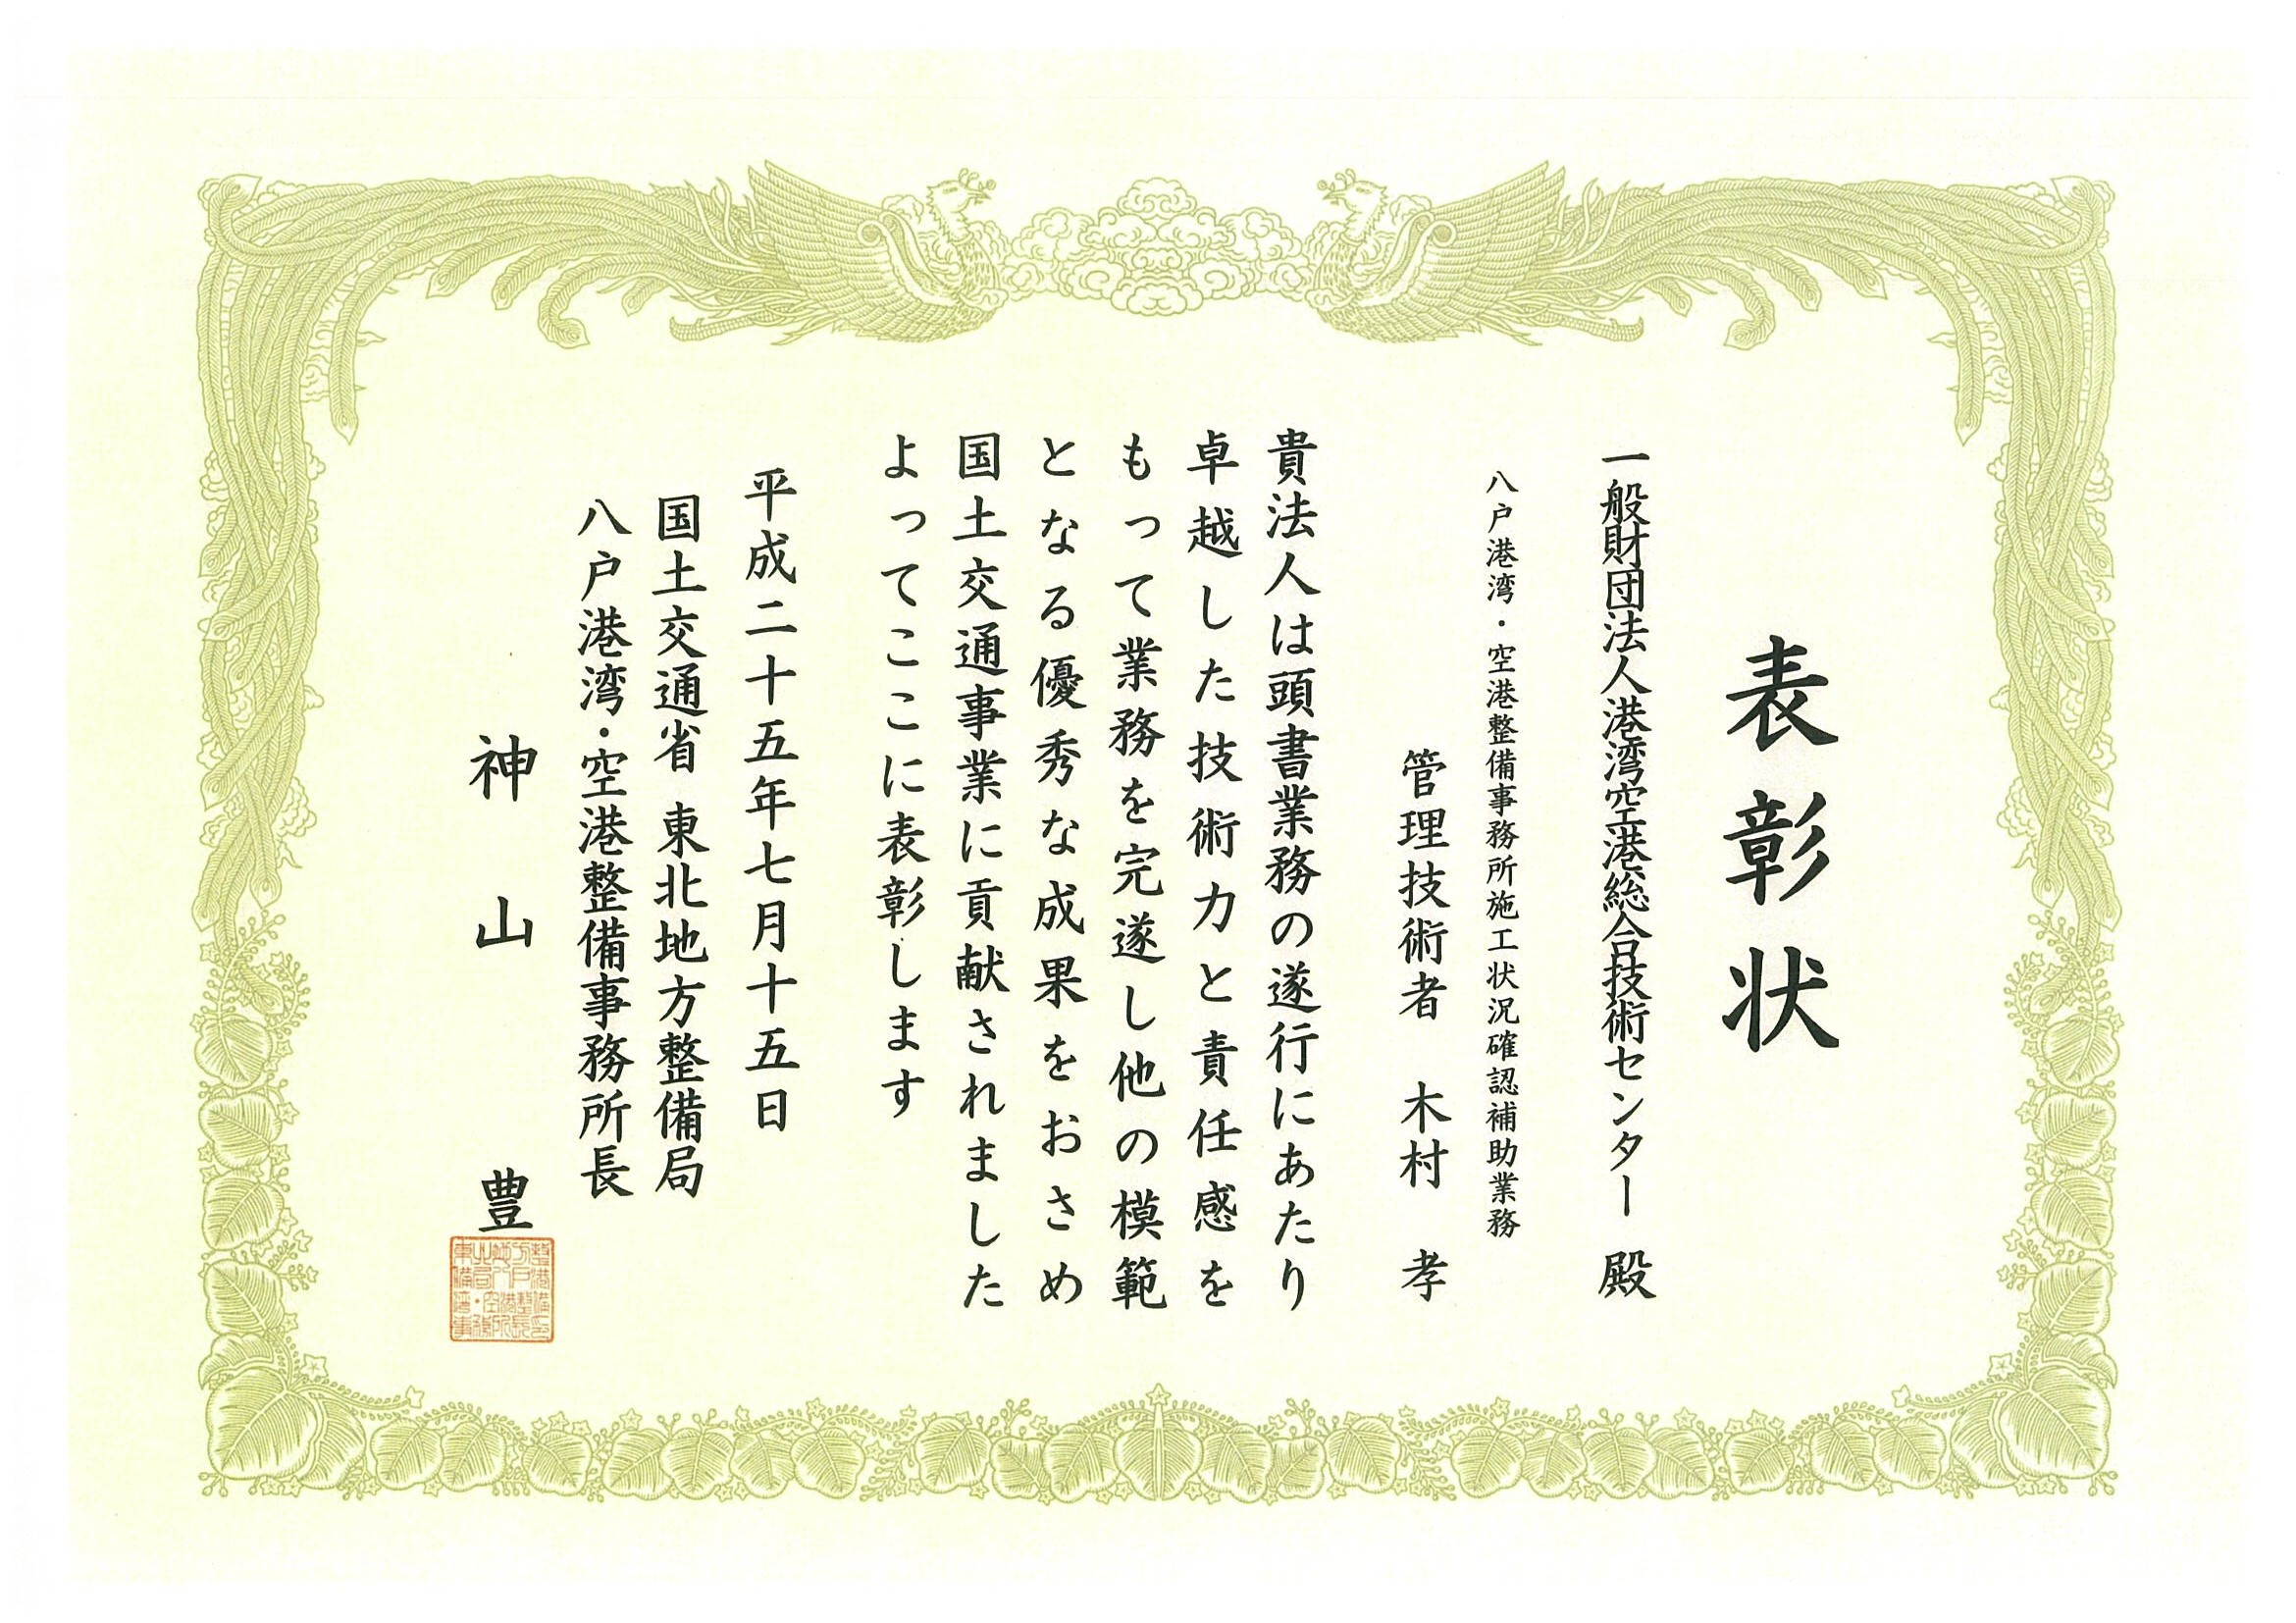 表彰状
一般財団法人港湾空港総合技術センター 殿
八戸港湾・空港整備事務所施工状況確認補助業務
管理技術者 木村 孝
貴法人は頭書業務の遂行にあたり
卓越した技術力と責任感を
もって業務を完遂し他の模範
となる優秀な成果をおさめ
国土交通事業に貢献されました
よってここに表彰します
平成二十五年七月十五日
国土交通省 東北地方整備局
八戸港湾・空港整備事務所長
神山 豊